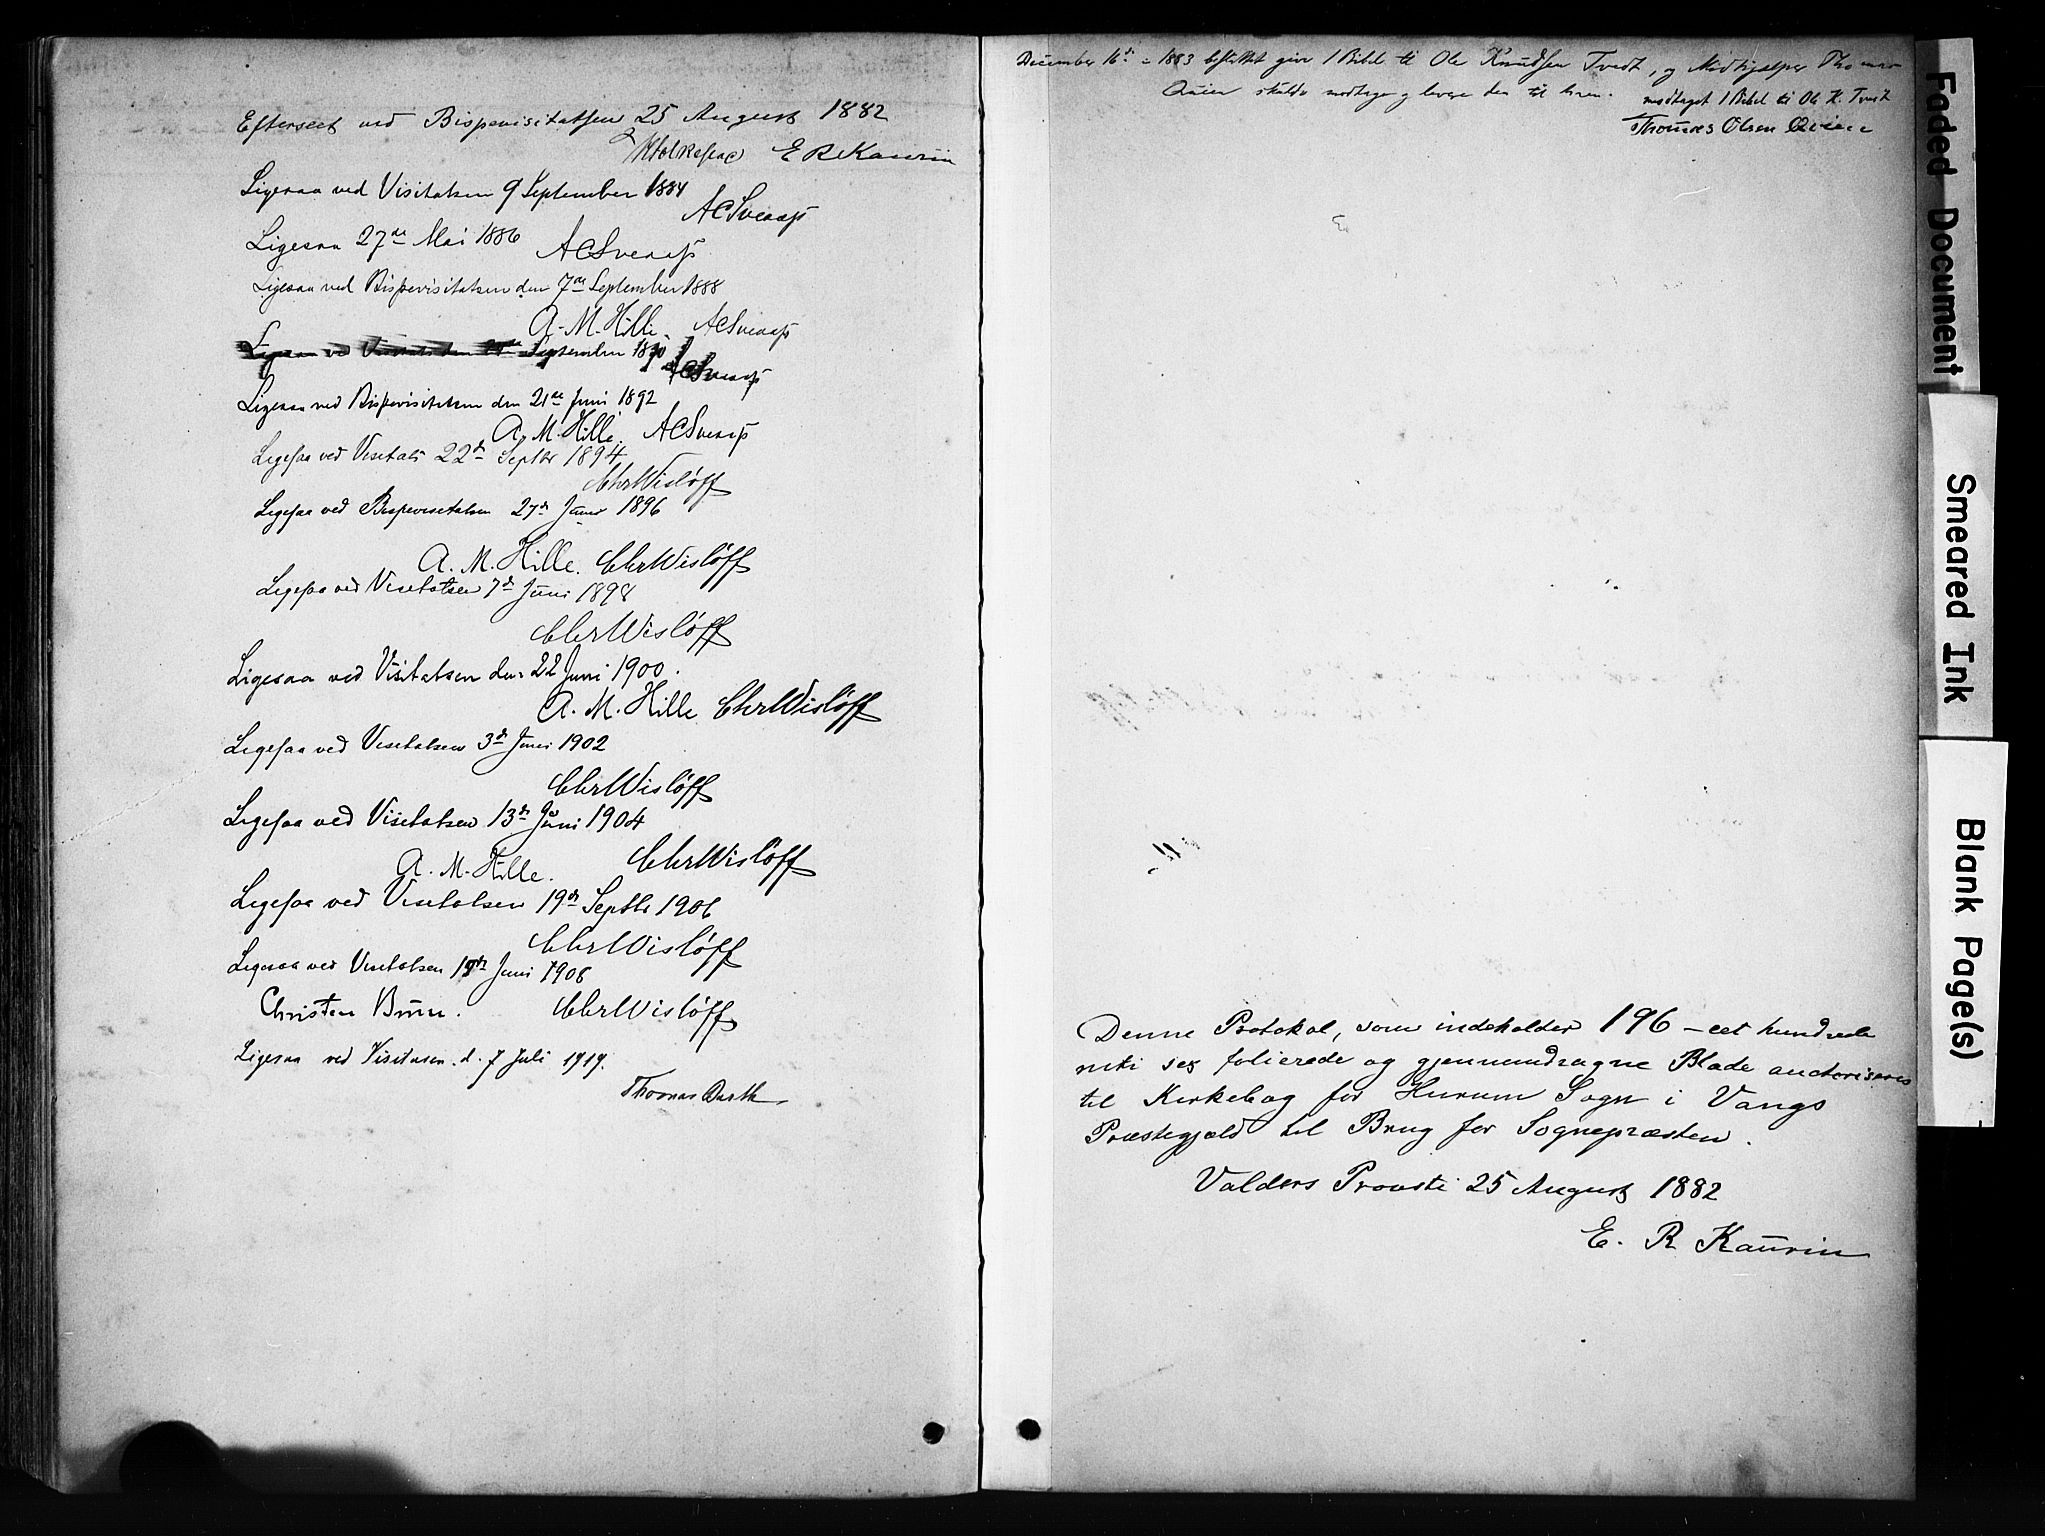 Efterseet ved Bispevisitatsen 25 August 1882
E R Kaurin
Ligesaa ved Visitatsen 9 September 1884
ACSveaaß
Ligesaa 27de Mai 1886
ACSveaaß
Ligesaa ved Bispevisitatsen den 7de September 1888
A. M. Hille. ACSveaaß
Ligesaa ved September 1890
ACSveaaß
Ligesaa ved Bispevisitatsen den 21de Juni 1892
A. M. Hille. ACSveaaß
Ligesaa ved Visitats 22d Septbr 1894
Chr Wisløff
Ligesaa ved Bispevisitatsen 27d Juni 1896
A. M. Hille. Chr Wisløff
Ligesaa ved Visitatsen 7d Juni 1898
Chr Wisløff
Ligesaa ved Visitatsen den 22 Juni 1900.
A. M. Hille Chr Wisløff
Ligesaa ved Visitatsen 3d Juni 1902
Chr Wisløff
Ligesaa ved Visitatsen 13d Juni 1904
A. M. Hille. Chr Wisløff
Ligesaa ved Visitatsen 19d Septbr 1906
Chr Wisløff
Ligesaa ved Visitatsen Juni 1908
Christen Brun. Chr Wisløff
Ligesaa ved Visitasen. d. 7 Juli 1919.
Thomas Barth.
December 16d 1883 give 1 Bibel til Ole Knudsen Tvedt, og Medhjælper Thomas
Qvien skulde modtage og levere den til ham.
modtaget 1 Bibel til Ole K. Tvedt
Thomas Olsen Qvien
Denne Protokol, som indeholder 196 – eet hundrede
niti sex folierede og gjennemdragne Blade auctoriseres
til Kirkebog for Hurum Sogn i Vangs
Præstegjæld til Brug for Sognepræsten.
Valders Provsti 25 August 1882
E. R Kaurin
Faded Document
Smeared Ink
Blank Page(s)